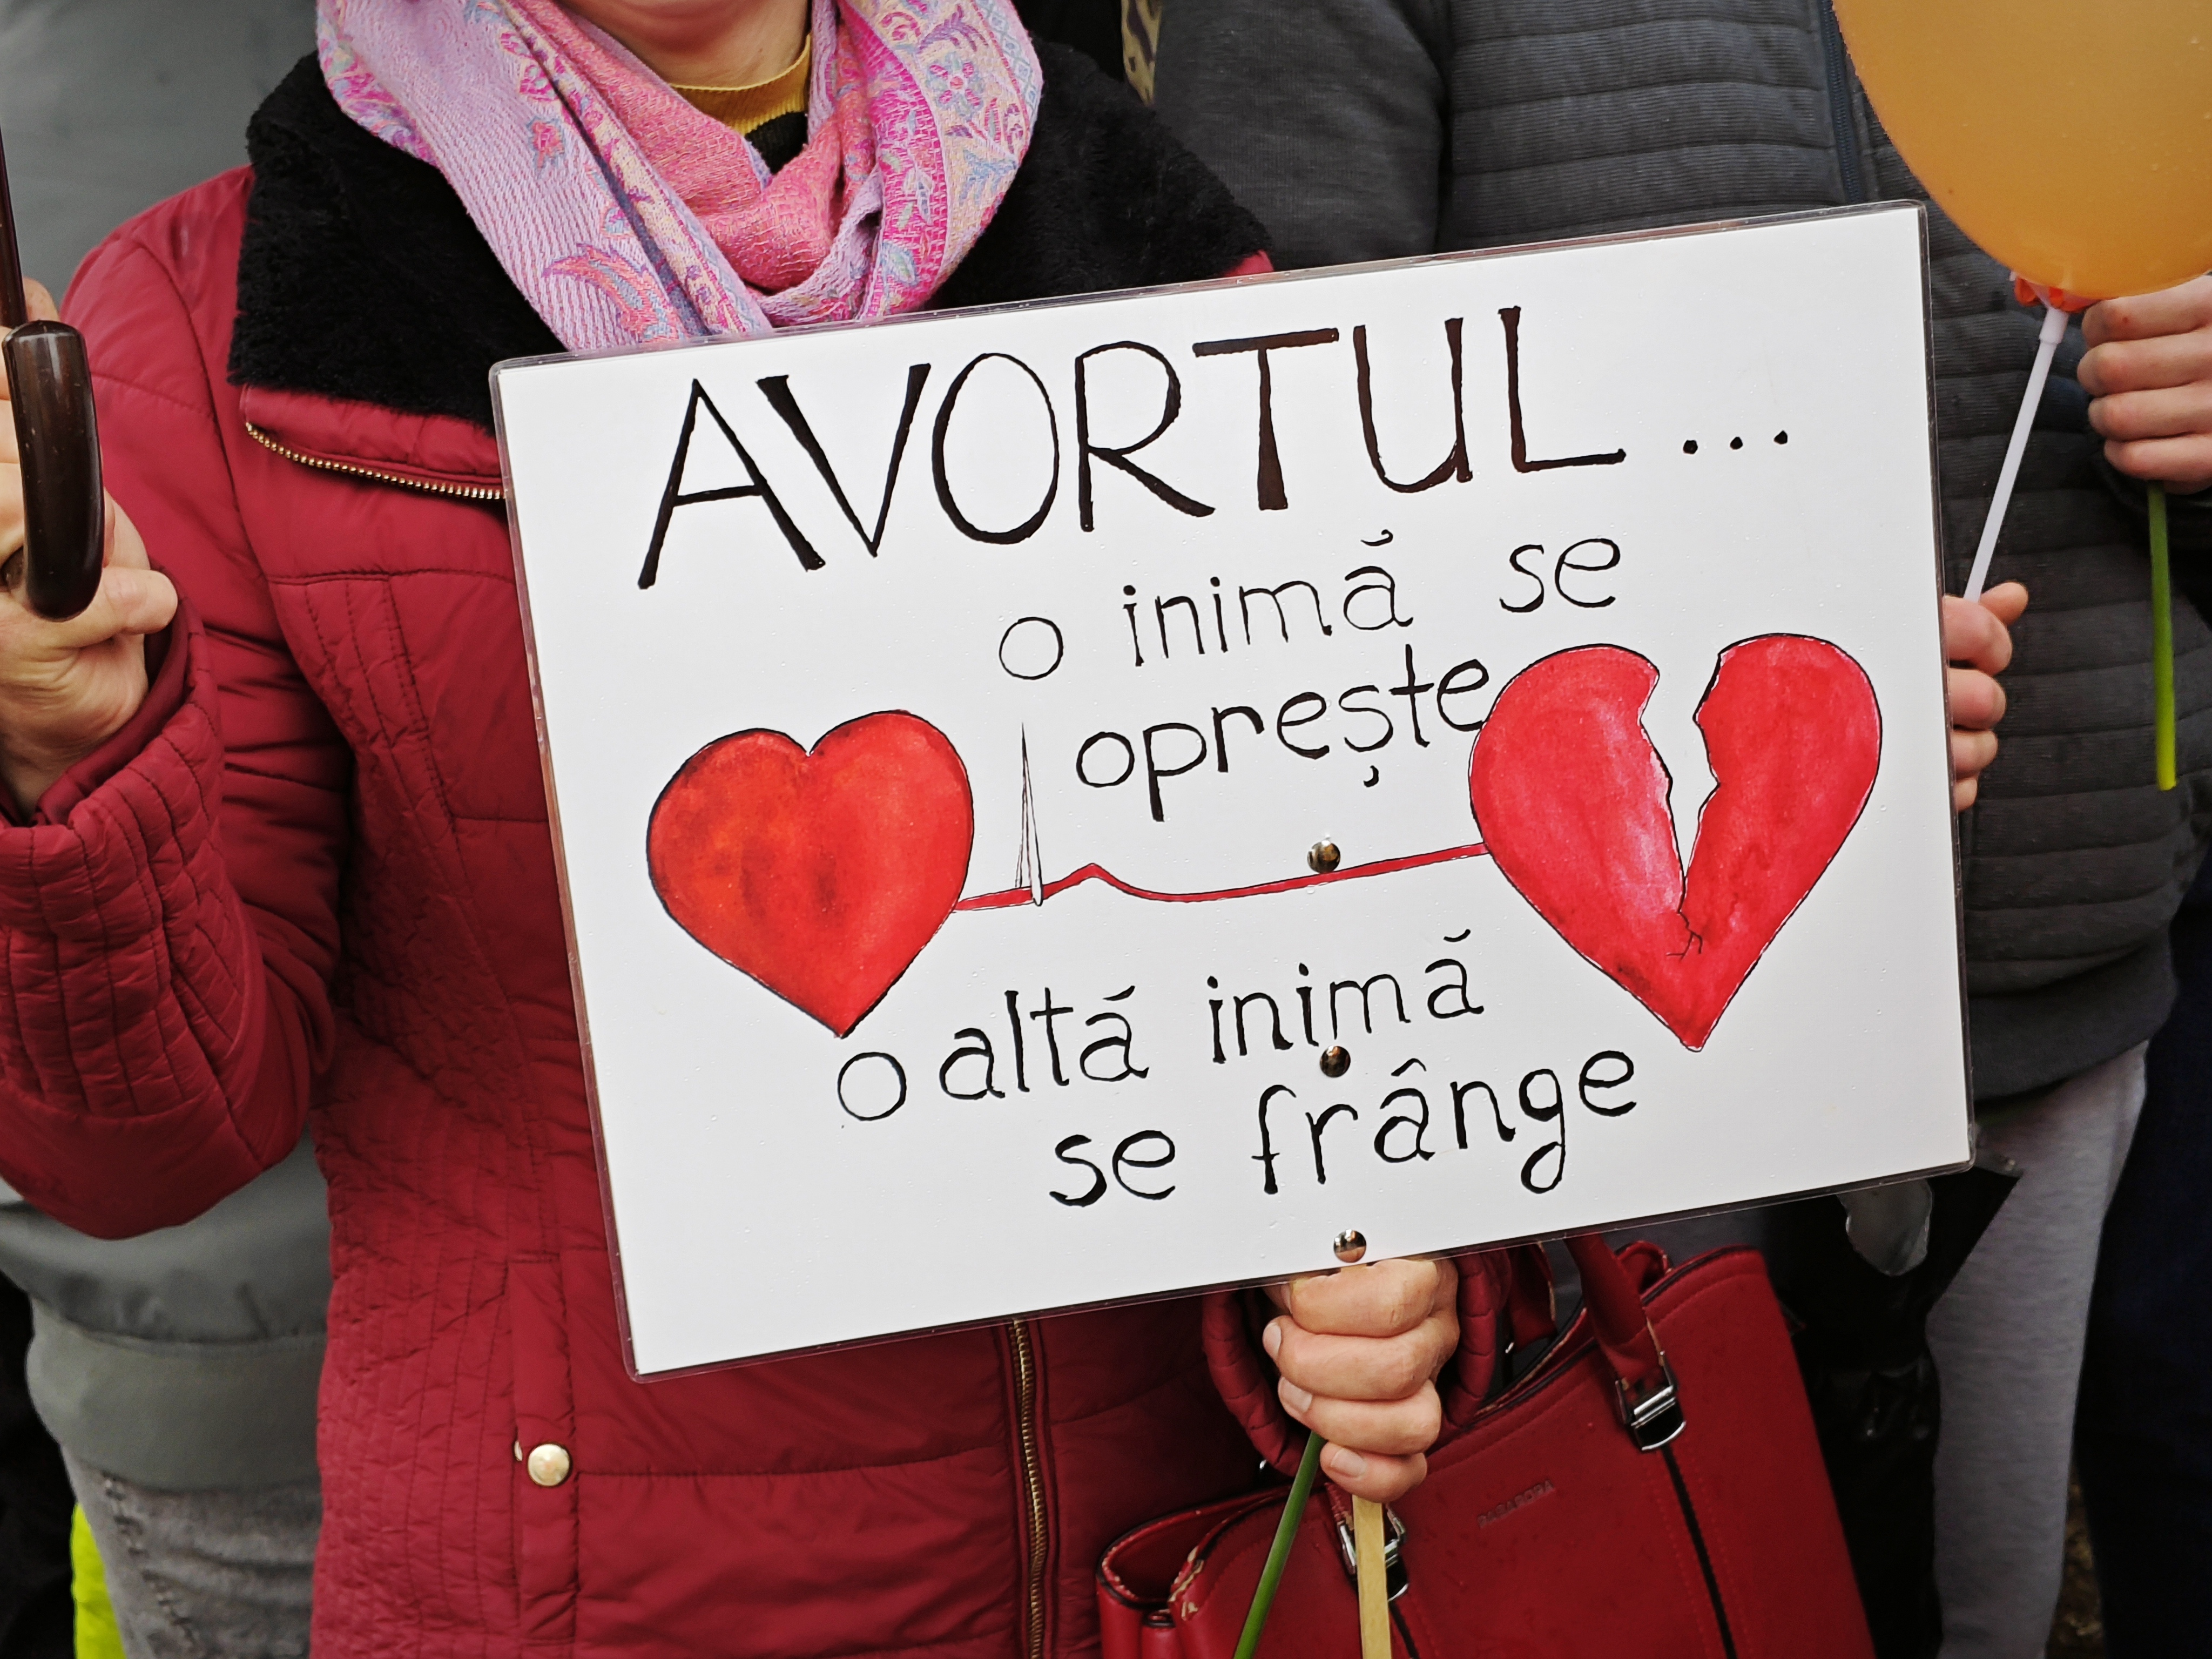 AVORTUL...
o inimă se
oprește
o altă inimă
se frânge